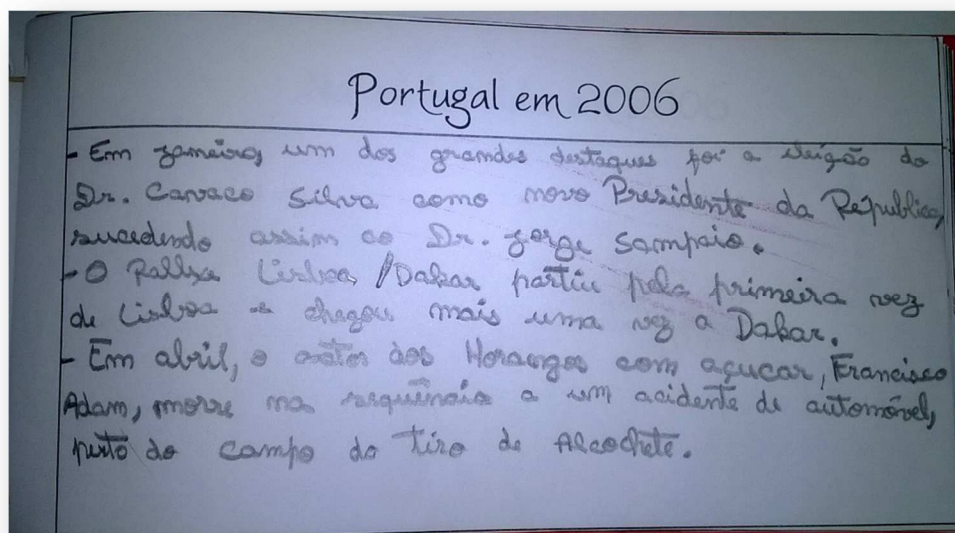 Portugal em 2006
- Em janeiro, um dos grandes destaques foi a eleição do
Dr. Cavaco Silva como novo Presidente da República,
sucedendo assim ao Dr. Jorge Sampaio.
- O Rallye Lisboa/Dakar partiu pela primeira vez
de Lisboa e chegou mais uma vez a Dakar.
- Em abril, o actor dos Morangos com açucar, Francisco
Adam, morre na sequência a um acidente de automóvel,
perto do campo do tiro de Alcochete.